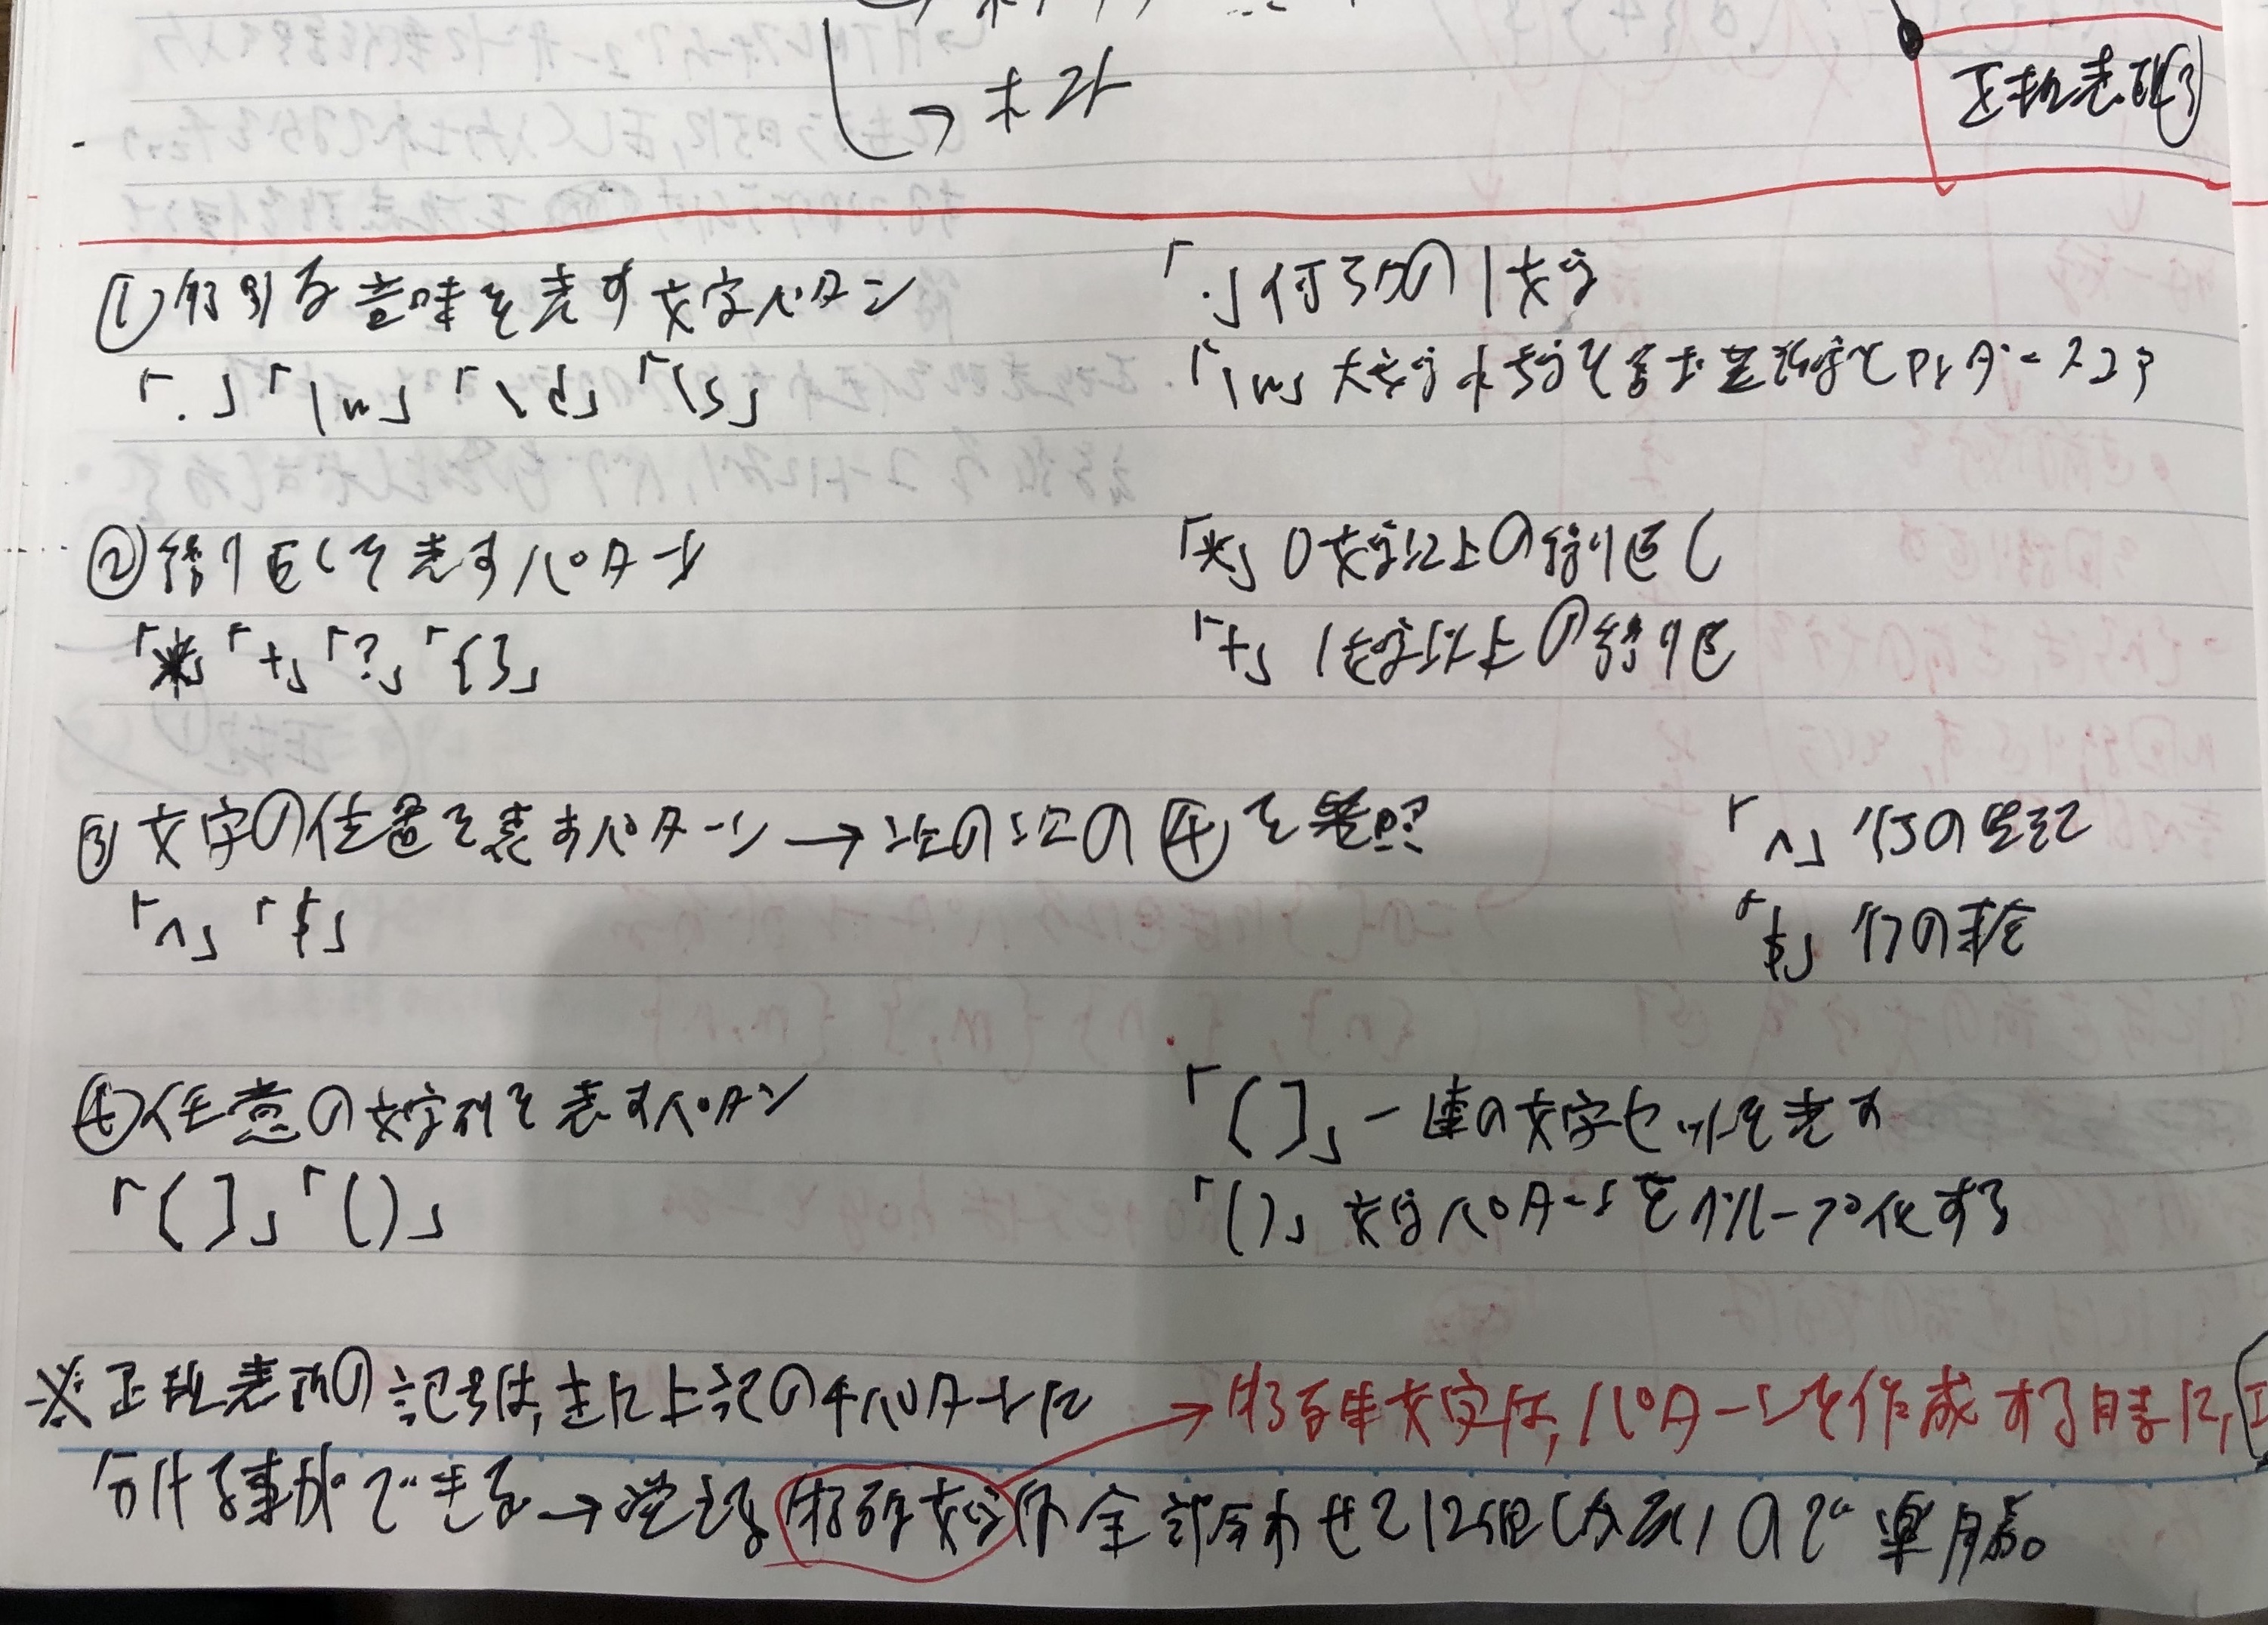 → ホスト
正規表現③
①特別な意味を表す文字パターン
「.」「\w」「\d」「\s」
「.」何らかの1文字
「\w」大文字小文字を含む英数字とアンダースコア
②繰り返しを表すパターン
「*」「+」「?」「{}」
「*」0文字以上の繰り返し
「+」1文字以上の繰り返
③文字の位置を表すパターン→次の次の④を参照
「^」「$」
「^」行の先頭
「$」行の末尾
④任意の文字列を表すパターン
「[]」「()」
「[]」一連の文字セットを表す
「()」文字パターンをグループ化する
※正規表現の記号は、主に上記の4パターンに
分ける事ができる→覚える特殊文字は全部合わせて12個しかないので楽勝。
→特殊文字は、パターンを作成する時に、